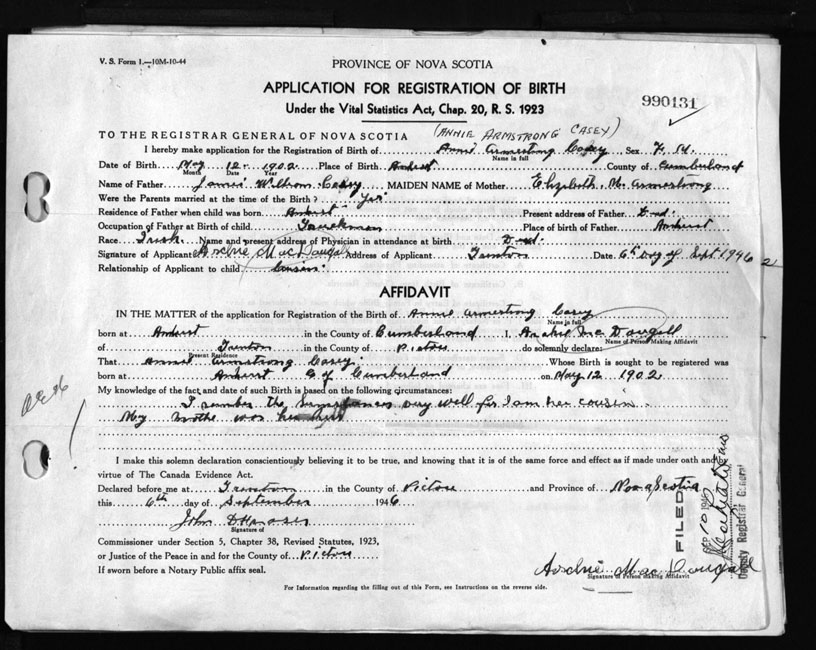 V. S. Form 1.—10M-10-44
PROVINCE OF NOVA SCOTIA
APPLICATION FOR REGISTRATION OF BIRTH
Under the Vital Statistics Act, Chap. 20, R. S. 1923
990131
(ANNIE ARMSTRONG CASEY)
TO THE REGISTRAR GENERAL OF NOVA SCOTIA
I hereby make application for the Registration of Birth of Annie Armstrong Casey Sex F.
Name in full
Date of Birth May 12 1902 Place of Birth Amherst County of Cumberland
Month Date Year
Name of Father James William Casey MAIDEN NAME of Mother Elizabeth M. Armstrong
Were the Parents married at the time of the Birth? Yes
Residence of Father when child was born Amherst Present address of Father Dead.
Occupation of Father at Birth of child Truckman Place of birth of Father Amherst
Race Irish Name and present address of Physician in attendance at birth Dead.
Signature of Applicant Archie MacDougall Address of Applicant Trenton Date 6th Day of Sept 1946
Relationship of Applicant to child Cousin
AFFIDAVIT
IN THE MATTER of the application for Registration of the Birth of Annie Armstrong Casey
Name in full
born at Amherst in the County of Cumberland I, Archie McDougall
Name of Person Making Affidavit
of Trenton in the County of Pictou do solemnly declare:
Present Residence
That Annie Armstrong Casey Whose Birth is sought to be registered was
born at Amherst Co of Cumberland on May 12 1902
My knowledge of the fact and date of such Birth is based on the following circumstances:
I the very well for I am her cousin.
My was her
I make this solemn declaration conscientiously believing it to be true, and knowing that it is of the same force and effect as if made under oath and
virtue of The Canada Evidence Act.
Declared before me at Trenton in the County of Pictou and Province of Nova Scotia
this 6th day of September 1946
John
Signature of
Commissioner under Section 5, Chapter 38, Revised Statutes, 1923,
or Justice of the Peace in and for the County of Pictou
If sworn before a Notary Public affix seal.
Archie MacDougall
Signature of Person Making Affidavit
FILED
SEP 10 1946
Deputy Registrar General
For Information regarding the filling out of this Form, see Instructions on the reverse side.